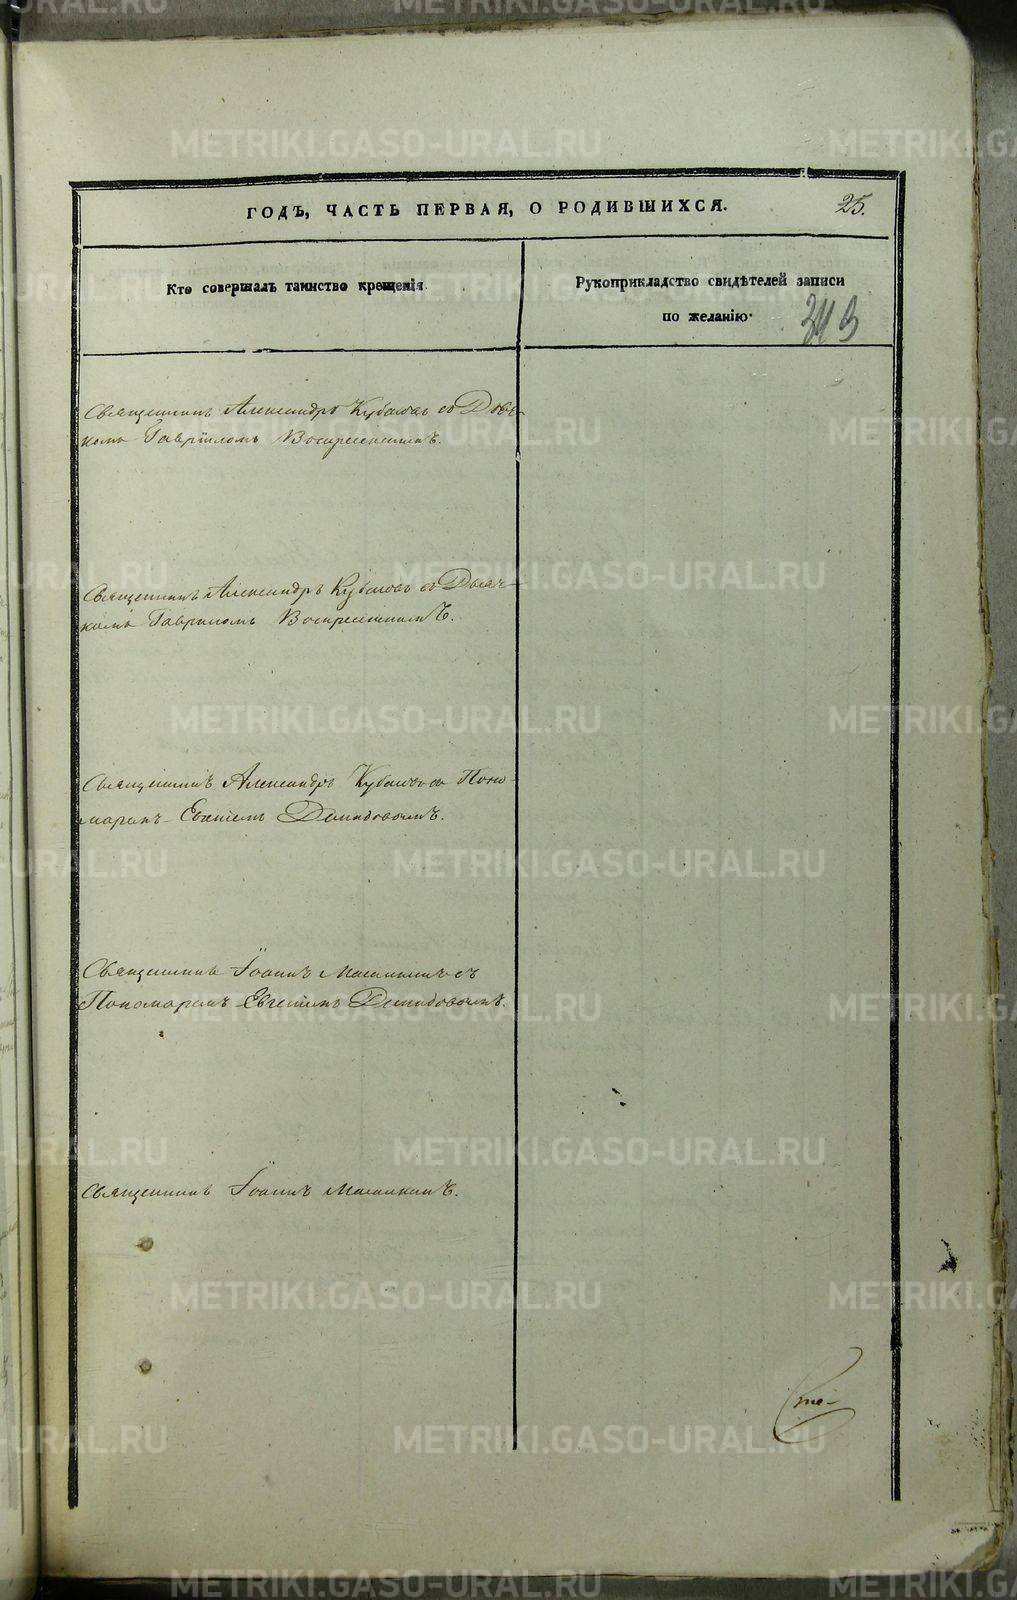 ГОДЪ, ЧАСТЬ ПЕРВАЯ, О РОДИВШИХСЯ. 25.
Кто совершалъ таинство крещенія
Рукоприкладство свидѣтелей записи
по желанію.
313
Священникъ Александръ Кубасовъ съ Дьяч-
комъ Гавріиломъ Воскресенскимъ.
Священникъ Александръ Кубасовъ съ Дьяч-
комъ Гавриломъ Воскресенскимъ.
Священникъ Александръ Кубасовъ съ Поно-
маремъ Евгеніемъ Демидовымъ.
Священникъ Іоаннъ съ
Пономаремъ Евгеніемъ Демидовымъ.
Священникъ Іоаннъ
METRIKI.GASO-URAL.RU